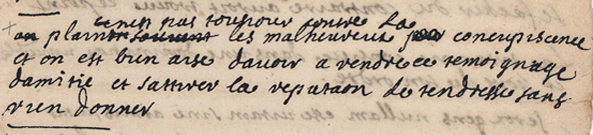 pas toujour contre La
plain les malheureux concupiscence
et on est bien aise davoir a rendre ce temoignage
damitie et sattirer la reputaon de tendresse sans
rien donner